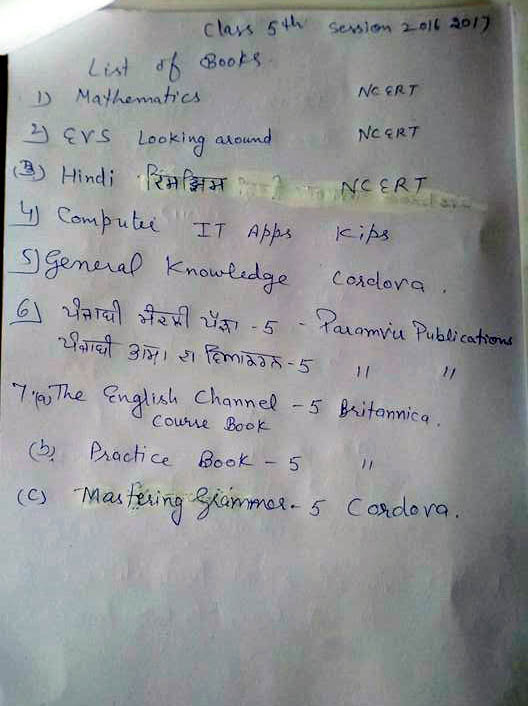 Class 5th Session 2016 2017
List of Books
1) Mathematics NCERT
2) EVS Looking around NCERT
(3) Hindi रिमझिम NCERT
4) Computer IT Apps Kips
5) General Knowledge Cordova.
6) ਪੰਜਾਬੀ ਆਰਸੀ -5 - Paramvir Publications
ਪੰਜਾਬੀ ਭਾਸ਼ਾ ਦਾ ਵਿਆਕਰਨ-5 " "
7.(a) The English Channel - 5 Britannica.
Course Book
(b) Practice Book - 5 "
(c) Mastering Grammer - 5 Cordova.